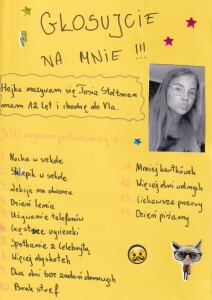 GŁOSUJCIE
NA MNIE !!!
Hejka nazywam się Tosia
mam 12 lat i chodzę do VIa.
Jeśli wygram
1 Nocka w szkole
2 Sklepik w szkole
3 Lekcje na dworcu
4 Dzień lenia
5 Używanie telefonów
6 Częstsze wycieczki
7 Spotkanie z celebrytą
8 Więcej dyskotek
9 Dwa dni bez zadań domowych
10 Brak stref
11 Mniej kartkówek
12 Więcej dni wolnych
13 Ciekawsze przerwy
14 Dzień piżamy